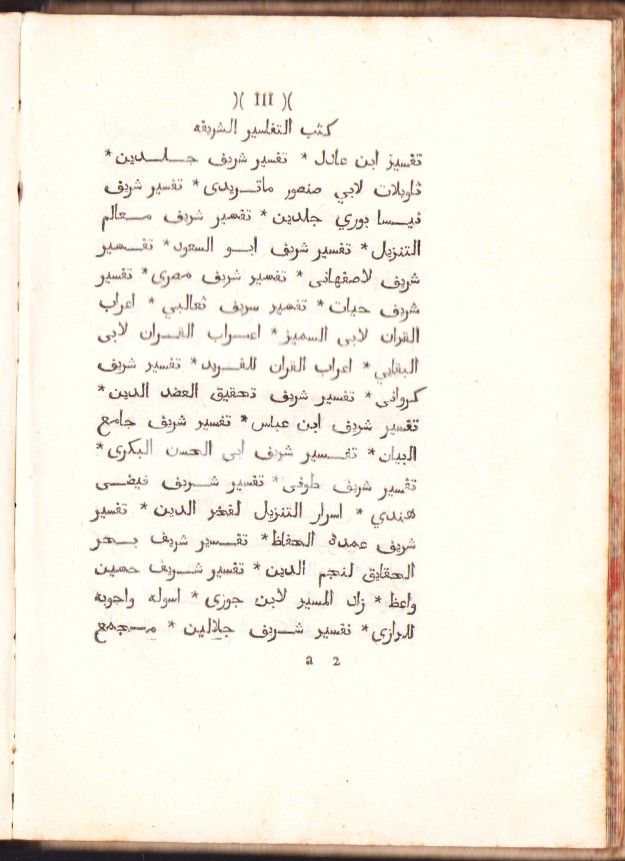 )( III )(
كتب التفاسير الشريفه
تفسيز ابن عادل * تفسير شريف جلدين *
تاويلات لابي صنصور ماتريدى * تفسير شريف
نيسا بوري جلدين * تفسير شريف معالم
التنزيل * تفسير شريف ابو السعود * تفسير
شريف لاصفهانى * تفسير شريف مصرى * تفسير
شريف حيات * تفسير سريف ثعالبي * اعراب
القران لابى السميز * اعراب القران لابى
البقايي * اعراب القران للفريد * تفسير شريف
كروانى * تفسير شريف تحقيق العضد الدين *
تفسير شريف ابن عباس * تفسير شريف جامع
البيان * تفسير شريف ابى الحسن البكرى *
تفسير شريف طوفى * تفسير شريف فيضى
هندي * اسرار التنزيل لفخر الدين * تفسير
شريف عمدة الحفاظ * تفسير شريف بحر
الحقايق لنجم الدين * تفسير شريف حسين
واعظ * زاد المسير لابن جوزى * اسوله واجوبه
للرازي * تفسير شريف جلالين * مجمع
a 2